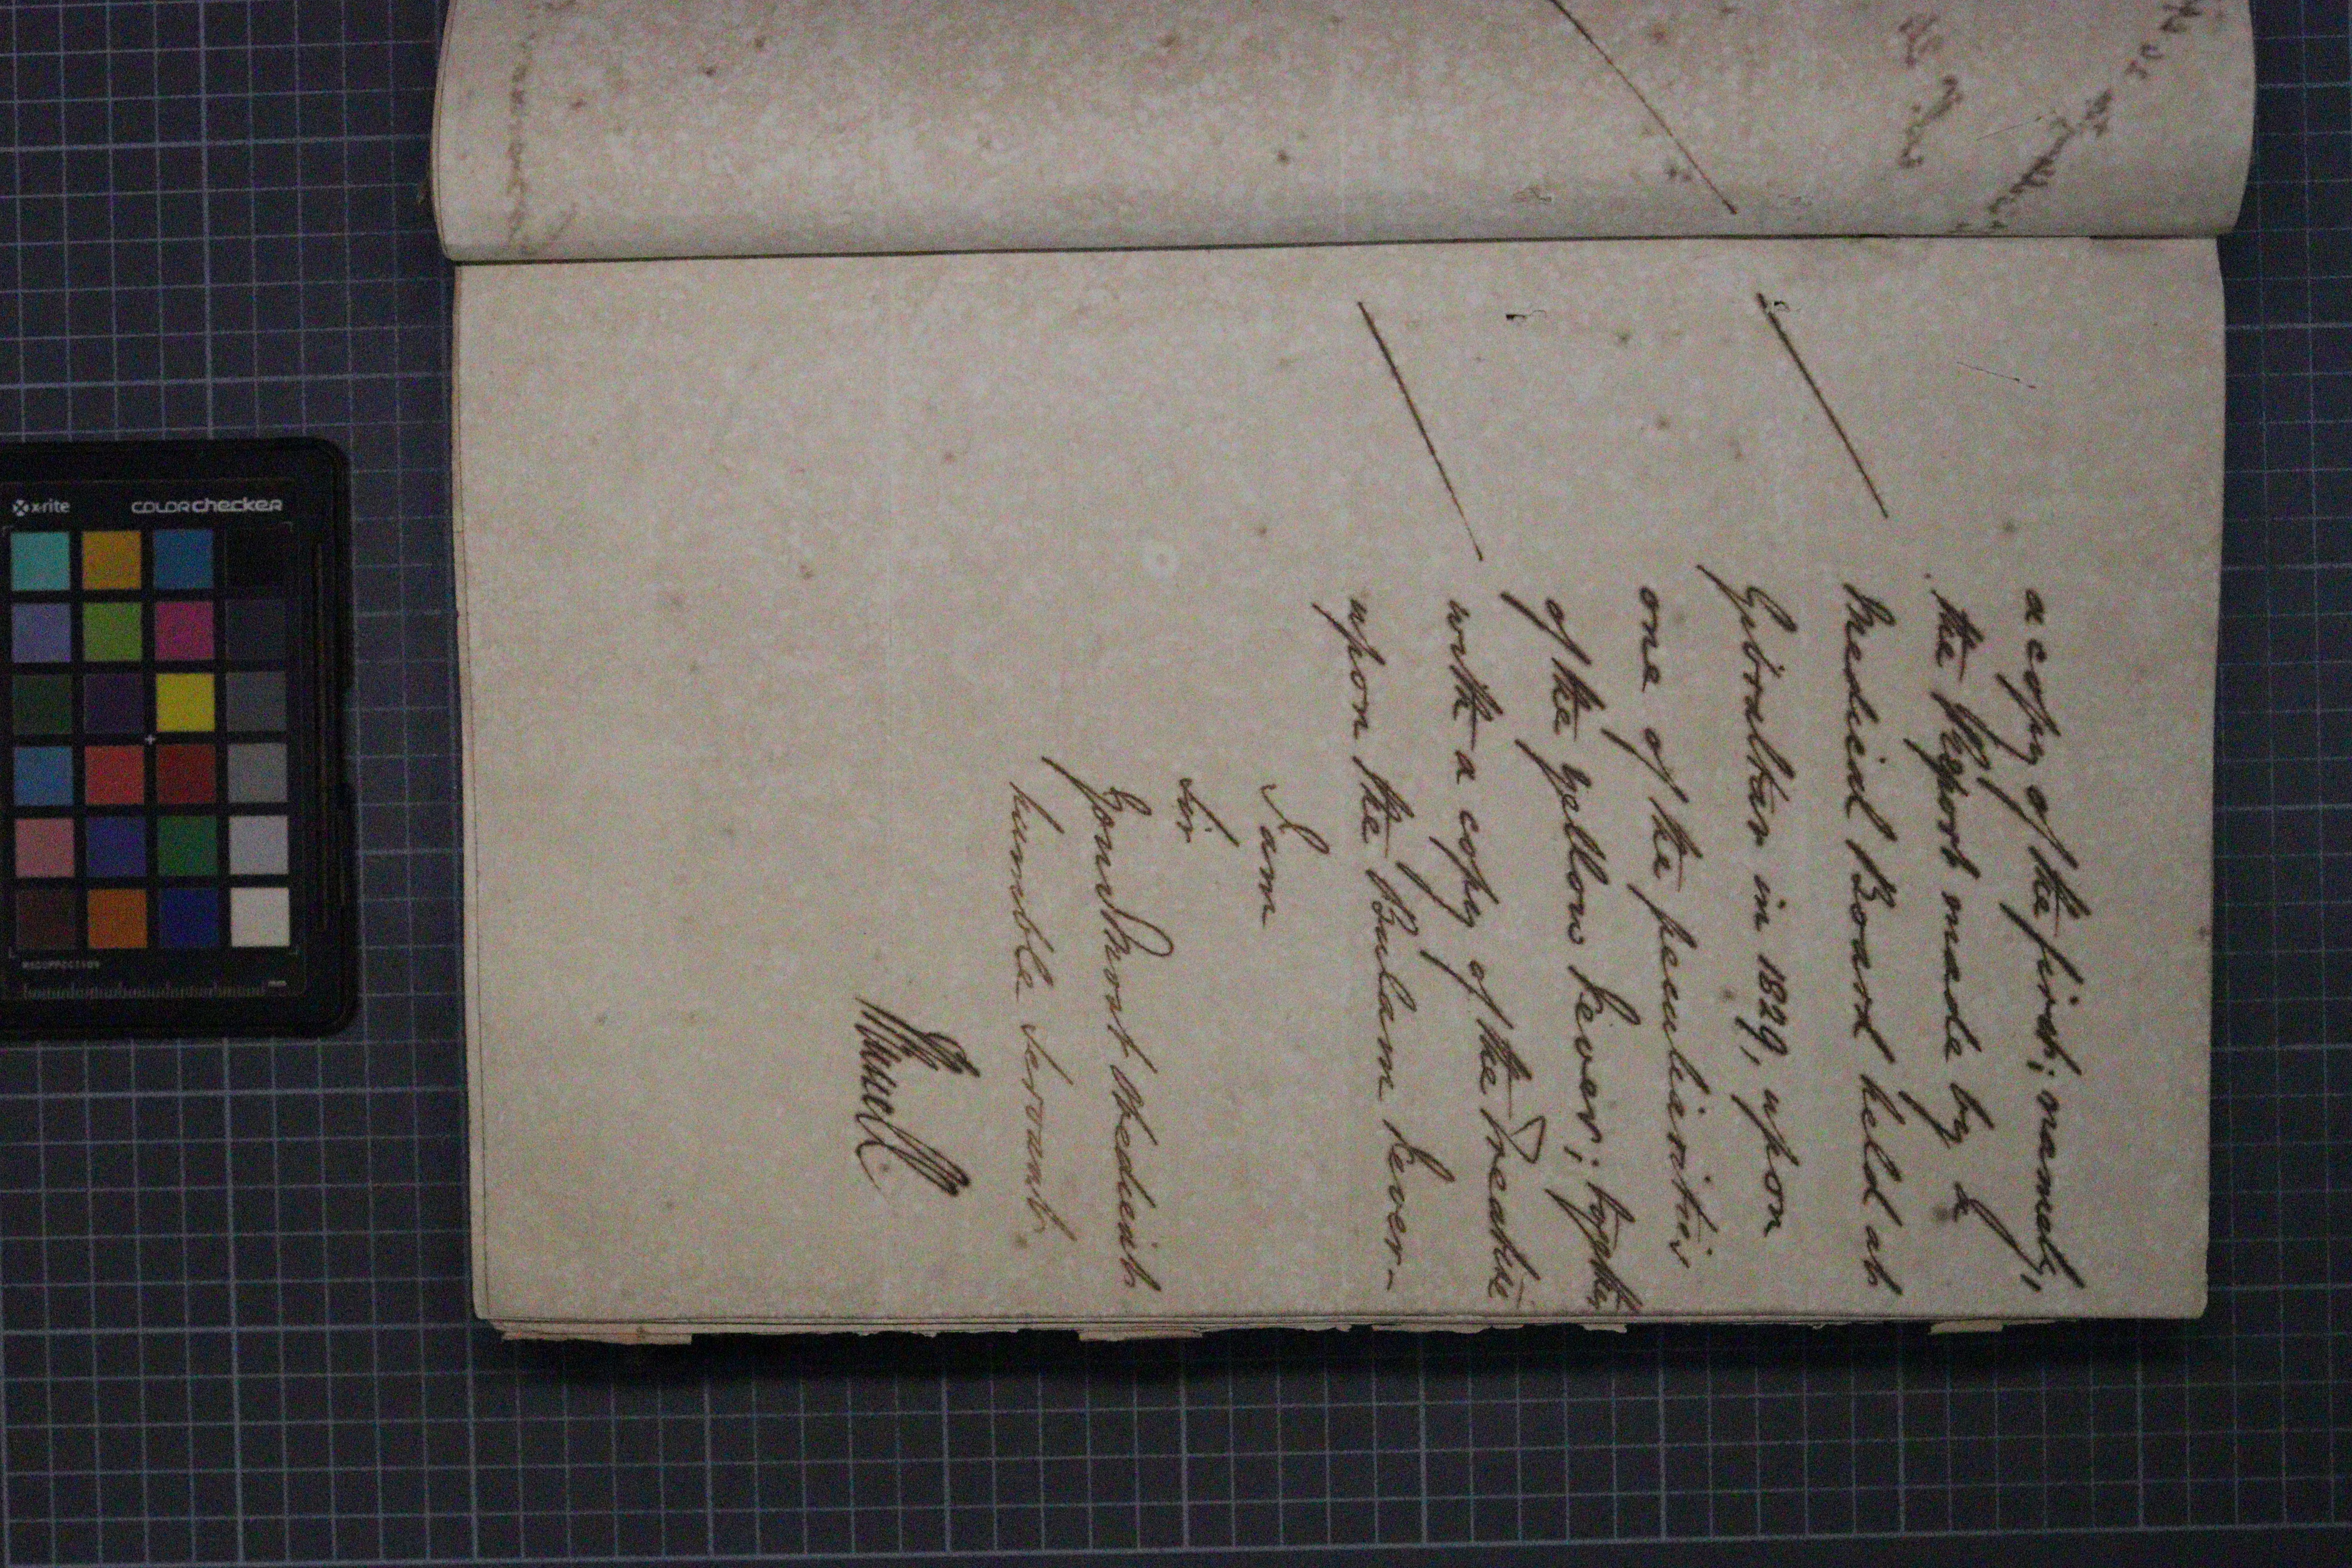 a copy of the first; namely,
the Report made by a
Medical Board held at
Gibraltar in 1829, upon
one of the peculiarities
of the yellow Fever; together
with a copy of the Treatise
upon the Bulam Fever-
I am
Sir
Your Most obedient
humble Servant.
x-rite colorchecker